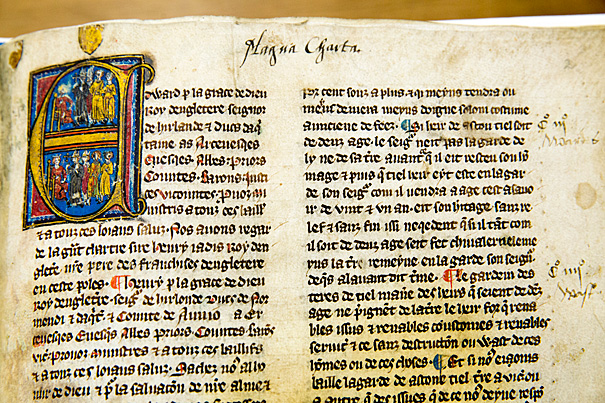 Magna Charta.
Edward p la grace de dieu
Roy dengletere seignor
de hirlande & ducs daq
taine as Arceuesqes
Euesqes Abbes Priors
Countes Barons Justi
ces viscontes Prouoz mi
nistris a touz ces baill
& a touz ces loiaus saluz. Nos auons regar
de la g͡nt chartre sire henry iadis Roy den
gletre nr̄e pere des franchises dengletere
en ceste poles. ¶ henry p la grace de dieu
Roy dengletre seig̃ de hirlonde Ducs de Nor
mendi & daq̃t & Comte de A Er
ceuesqes Euesqes Abbes Priors Countes baros
visc̃ Prouoz ministres & a touz ces baillifs
& a touz ces loiaus saluz. Sachez no᷒ a lo
nur de dieu & p̱ la saluacõn de nr̄e alme &
por cent souz a plus & qi meyns tendra ou
meyns deuera meyns doigne solom custume
aunciene de feez. ¶ Si leir de ascou tiel soit
de deuz age le seig̃ neit pas la garde de
ly ne de sa tr̃e auant q̃ il eit resceu son ho
mage & puis q̃ tiel heir eyt este en la gar
de son seig̃ com il uendra a age cest a sauo
ir de vint & vn an eit son heritage sanz re
lef & sanz fin issi neqedent q̃ si il tant com
il soit de deuz age seit fet chiualer ie le me
yns la tr̃e remeyne en la garde son seig̃
deq̃s al auant dit t̃me. ¶ Le gardein des
teres de tiel man̄e des heirs q̃ seient de dez
age ne p̃ignent de la tr̃e le heir fors q̃ rena
bles issus & renables coustomes & renables
seruic̃ & ce sanz destruccõn ou wast de ces
homes ou de ces choses. ¶ Et si no᷒ eioms
baille la garde de ascone tiel tr̃e a visc̃ ou
a autre q̃ des issues de ce no᷒ deyue respõ